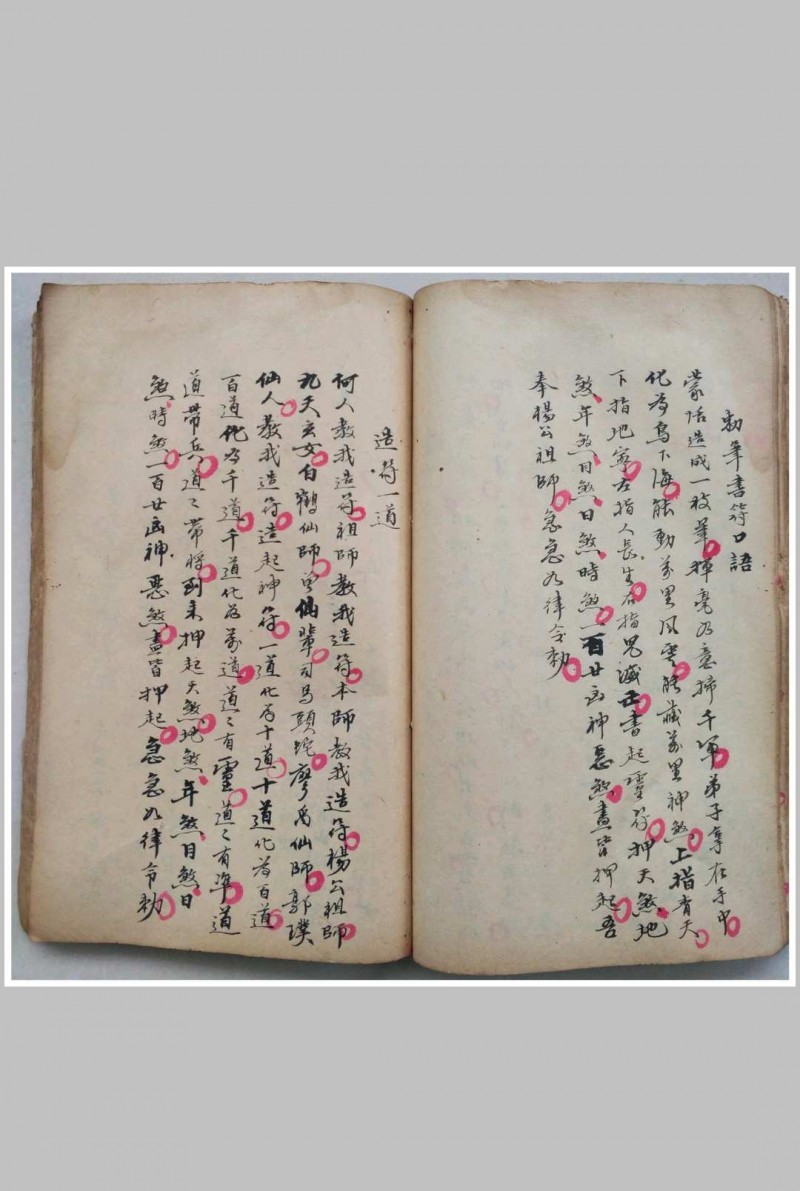 勅筆書符口語
蒙恬造成一枝筆揮毫乃意掃千軍弟子拿在手中
化為烏下海能動万里風雲能藏万里神煞上指青天
下指地家左指人長生右指鬼滅亡書起靈符押天煞地
煞年煞月煞日煞時煞一百廿凶神惡煞盡皆押起吾
奉楊公祖師急急如律令勅
造符一道
何人教我造符祖師教我造符本師教我造符楊公祖師
九天玄女白鶴仙師曾仙輩司馬頭陀廖禹仙師郭璞
仙人教我造符造起神符一道化為十道十道化為百道
百道化為千道千道化為萬道道々有靈道々有準道
道帶兵道々帶將到來押起天煞地煞年煞月煞日
煞時煞一百廿凶神惡煞盡皆押起急急如律令勅